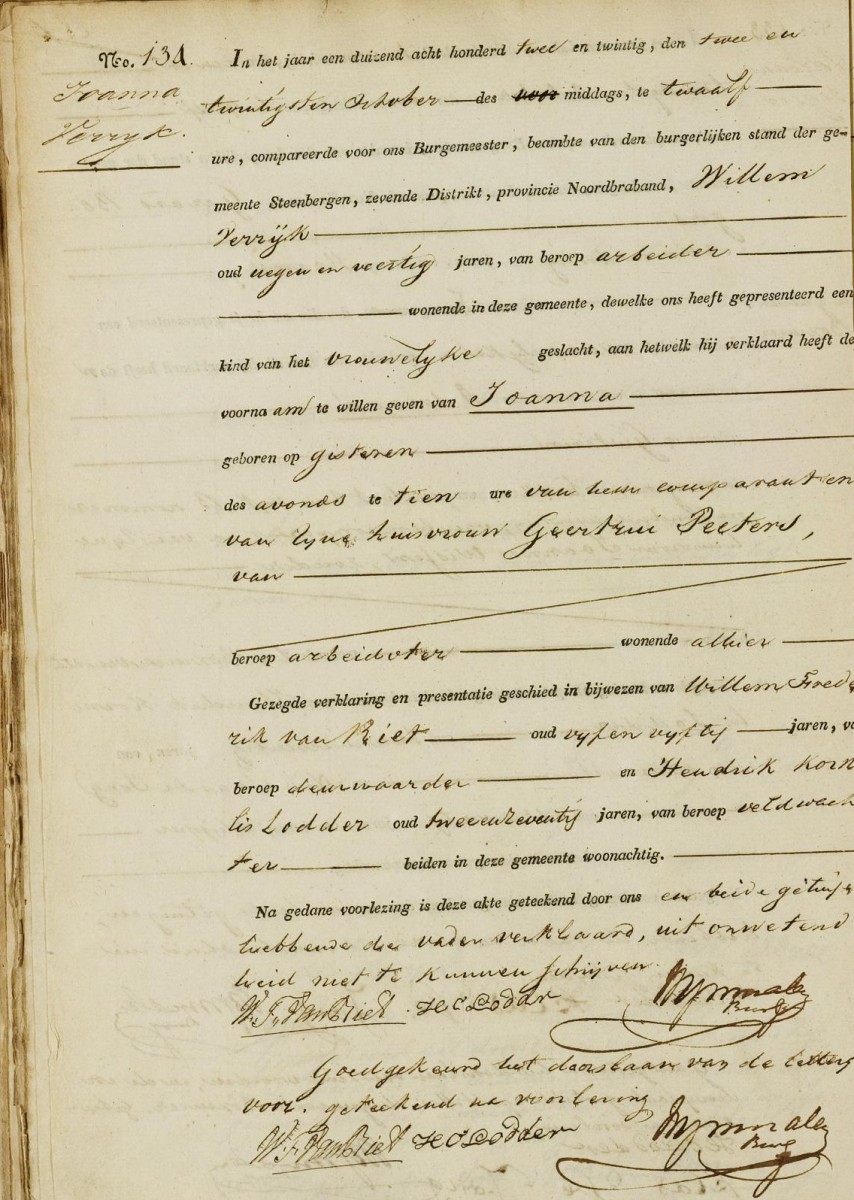 No. 134.
Joanna
Verryk.
In het jaar een duizend acht honderd twee en twintig, den twee en
twintigsten October des voor middags, te twaalf
ure, compareerde voor ons Burgemeester, beambte van den burgerlijken stand der ge-
meente Steenbergen, zevende Distrikt, provincie Noordbraband, Willem
Verrijk
oud negen en veertig jaren, van beroep arbeider
wonende in deze gemeente, dewelke ons heeft gepresenteerd een
kind van het vrouwelyke geslacht, aan hetwelk hij verklaard heeft de
voorna am te willen geven van Joanna
geboren op gisteren
des avonds te tien ure van hem comparant en
van zyne huisvrouw Geertrui Peeters,
van
beroep arbeidster wonende alhier
Gezegde verklaring en presentatie geschied in bijwezen van Willem Frede
rik van Riet oud vyf en vyftig jaren, va
beroep deurwaarder en Hendrik Korn
lis Lodder oud twee en zeventig jaren, van beroep veldwach
ter beiden in deze gemeente woonachtig.
Na gedane voorlezing is deze akte geteekend door ons en beide getuig
hebbende de vader verklaard, uit onwetend
heid niet te kunnen schryven.
W. F. Van Riet H C Lodder
Burg
Goedgekeurd het doorslaan van de letters
voor. geteekend na voorlezing
W. F. Van Riet H C Lodder
Burg